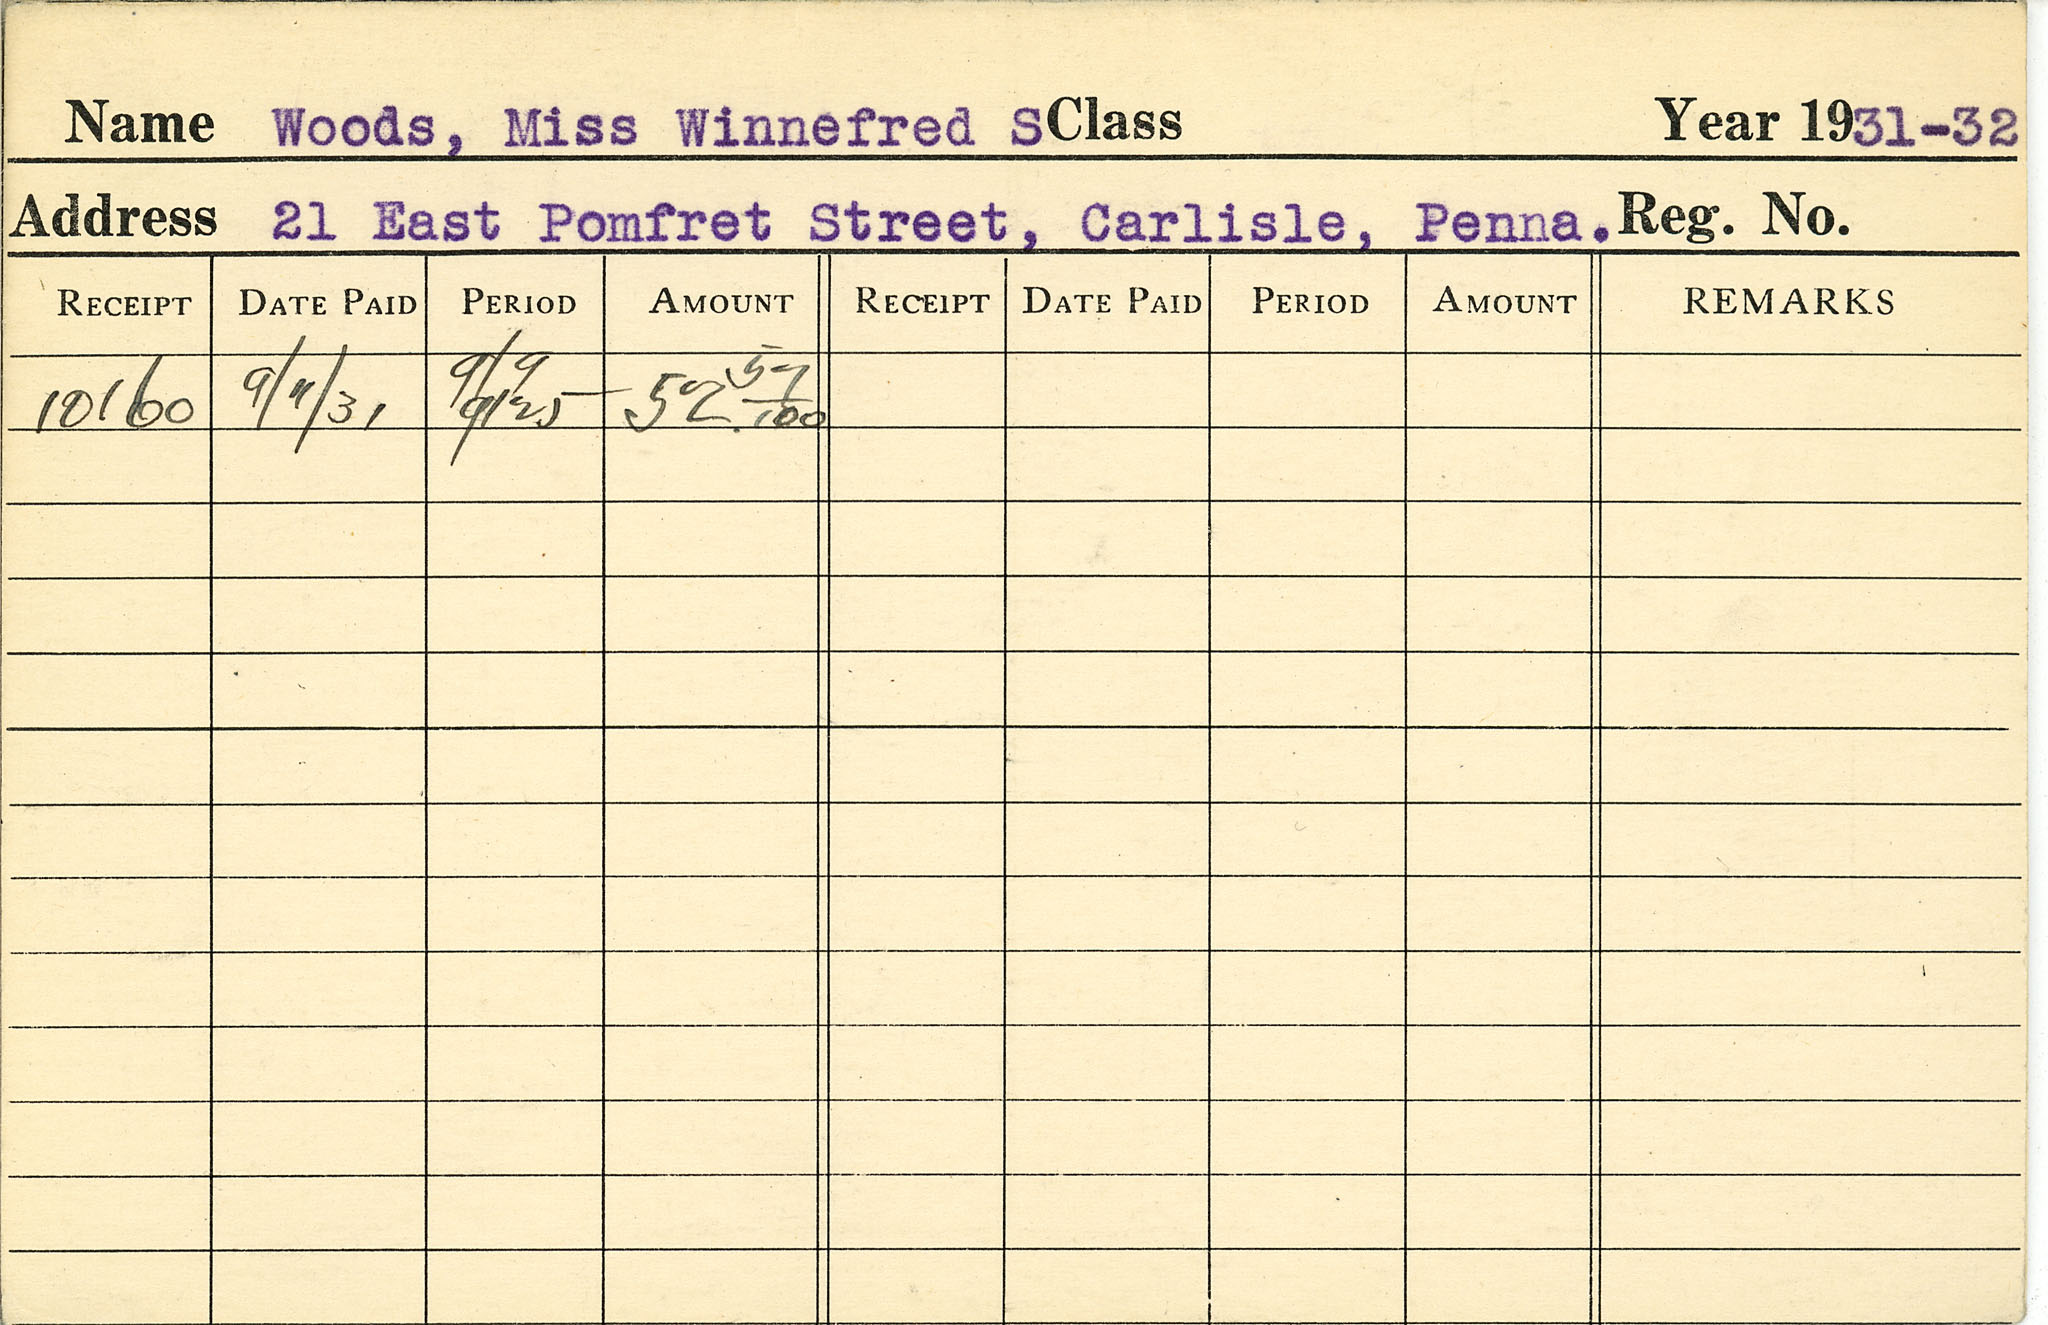 Name Woods, Miss Winnefred S Class Year 1931-32
Address 21 East Pomfret Street, Carlisle, Penna. Reg. No.
RECEIPT DATE PAID PERIOD AMOUNT RECEIPT DATE PAID PERIOD AMOUNT REMARKS
10160 9/11/31 9/9
9/25